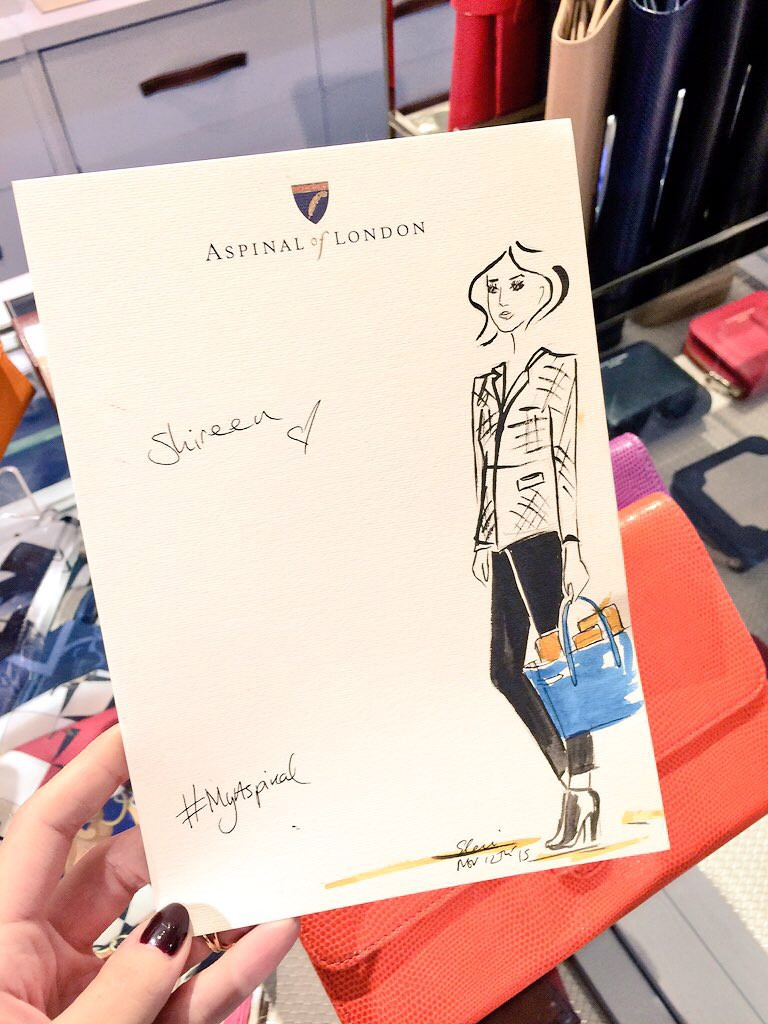 ASPINAL of LONDON
Shireen
#MyAspinal
Nov 12th 15